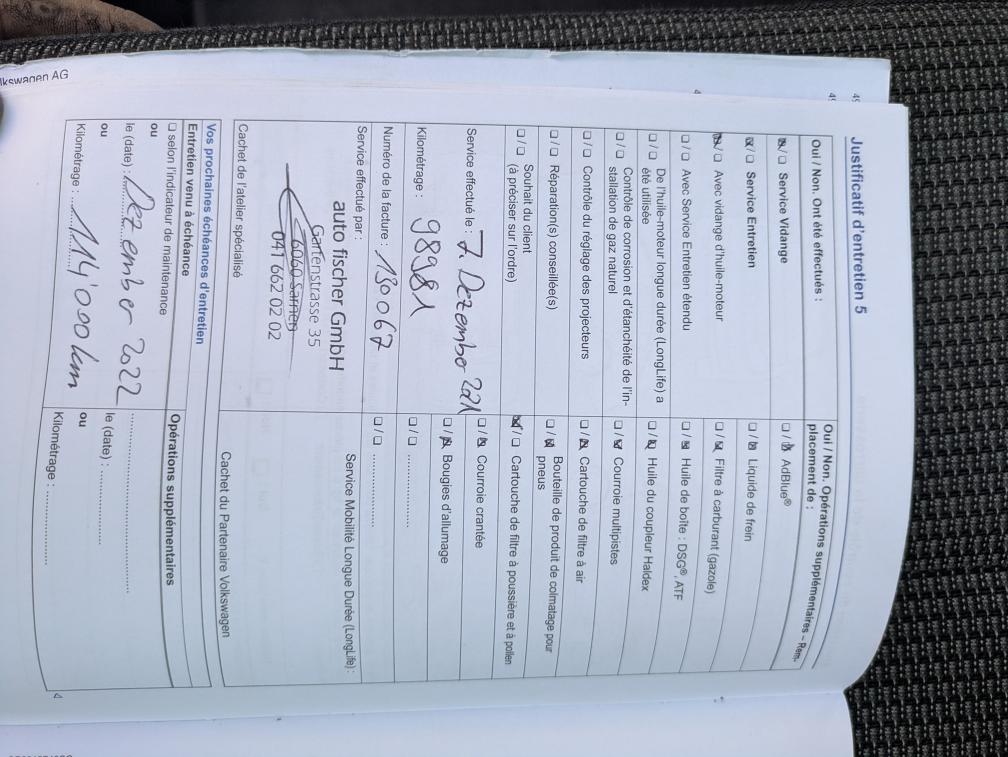 lkswagen AG
Justificatif d'entretien 5
Oui / Non. Ont été effectués :
☒/☐ Service Vidange
☒/☐ Service Entretien
☒/☐ Avec vidange d'huile-moteur
☐/☐ Avec Service Entretien étendu
☐/☐ De l'huile-moteur longue durée (LongLife) a
été utilisée
☐/☐ Contrôle de corrosion et d'étanchéité de l'in-
stallation de gaz naturel
☐/☐ Contrôle du réglage des projecteurs
☐/☐ Réparation(s) conseillée(s)
☐/☐ Souhait du client
(à préciser sur l'ordre)
Service effectué le : 7. Dezember 2021
Kilométrage : 98981
Numéro de la facture : 13067
Service effectué par :
auto fischer GmbH
Gartenstrasse 35
6060 Sarnen
041 662 02 02
Cachet de l'atelier spécialisé
Oui / Non. Opérations supplémentaires – Rem.
placement de :
☐/☒ AdBlue®
☐/☒ Liquide de frein
☐/☒ Filtre à carburant (gazole)
☐/☒ Huile de boîte : DSG®, ATF
☐/☒ Huile du coupleur Haldex
☐/☒ Courroie multipistes
☐/☒ Cartouche de filtre à air
☐/☒ Bouteille de produit de colmatage pour
pneus
☒/☐ Cartouche de filtre à poussière et à pollen
☐/☒ Courroie crantée
☐/☒ Bougies d'allumage
☐/☐ ................
☐/☐ ................
Service Mobilité Longue Durée (LongLife) :
Cachet du Partenaire Volkswagen
Vos prochaines échéances d'entretien
Entretien venu à échéance
☐ selon l'indicateur de maintenance
ou
le (date) : Dezember 2022
ou
Kilométrage : 114'000 km
Opérations supplémentaires
................
le (date) : ................
ou
Kilométrage : ................